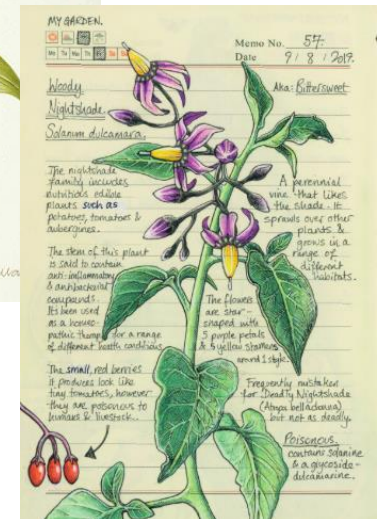 MY GARDEN.
Memo No. 57.
Mo Tu We Th Fr Sa Su
Date 9 / 8 / 2019.
Woody
Nightshade
Solanum dulcamara.
Aka: Bittersweet
The nightshade
family includes
nutritious edible
plants such as
potatoes, tomatoes &
aubergines.
A perennial
vine that likes
the shade. It
sprawls over other
plants &
grows in a
range of
different
habitats.
The stem of this plant
is said to contain
anti-inflammatory
& antibacterial
compounds.
It's been used
as a homeo-
pathic therapy for a range
of different health conditions
The flowers
are star-
shaped with
5 purple petals
& 5 yellow stamens
around 1 style.
The small, red berries
it produces look like
tiny tomatoes, however
they are poisonous to
humans & livestock.
Frequently mistaken
for Deadly Nightshade
(Atropa belladonna)
but not as deadly.
Poisonous.
contains solanine
& a glycoside-
dulcamarine.